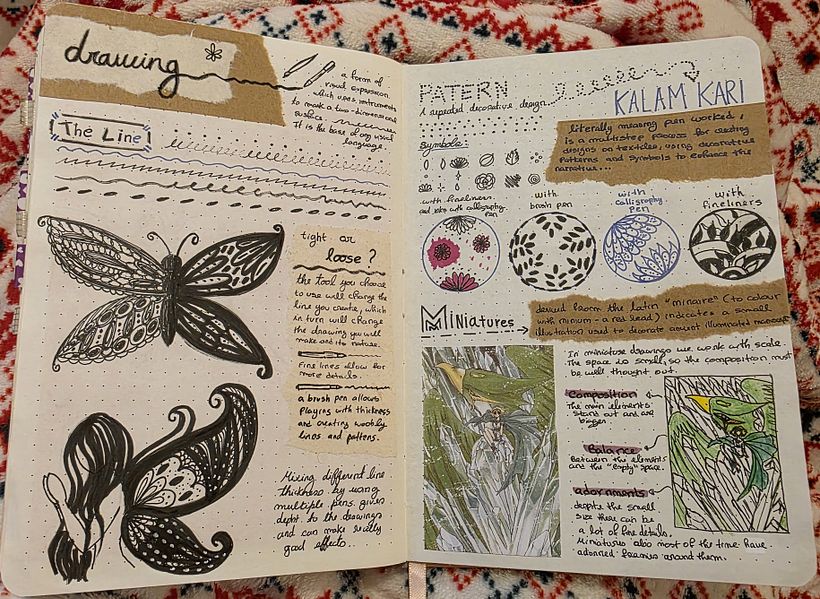 drawing
a form of
visual expression
which uses instruments
to mark a two-dimensional
surface.
It is the base of any visual
language.
The Line
tight or
loose?
the tool you choose
to use will change the
line you create, which
in turn will change
the drawing you will
make and its nature.
Fine lines allow for
more details.
a brush pen allows
playing with thickness
and creating woobly
lines and pattens.
Mixing different line
thickness by using
multiple pens. gives
depht to the drawings
and can make really
good effects.
PATERN
A repeated decorative design
symbols:
KALAM KARI
literally meaning pen worked,
is a multistep process for creating
designs on textiles, using decorative
patterns and symbols to enhance the
narrative...
with fineliners.
and with calligraphy
pen
with
brush pen
with
calligraphy
pen
with
fineliners
MINIATURES
derived from the latin "miniare" (to colour
with minium - a red lead) indicates a small
illustration used to decorate ancient illuminated
In miniature drawings we work with scale.
The space is small, so the composition must
be well thought out.
Composition
The main elements
stand out and are
bigger.
Balance
Between the elements
and the "empty" space.
adornments
despite the small
size there can be
a lot of fine details.
Miniatures also most of the time have
adorned frames around them.